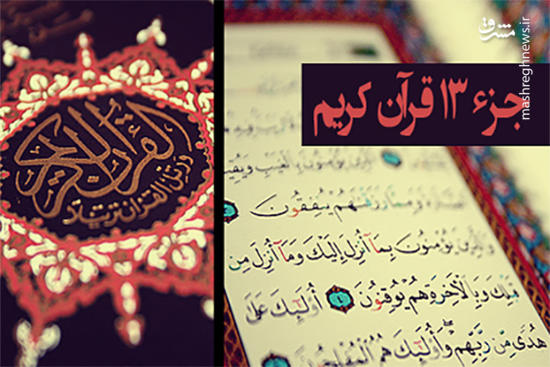 مشرق
mashreghnews.ir
جزء ۱۳ قرآن کریم
القرآن الكريم
ورتل القرآن ترتيلا
يُؤْمِنُونَ بِالْغَيْبِ وَيُقِي
وَمِمَّا رَزَقْنَاهُمْ يُنْفِقُونَ
وَالَّذِينَ يُؤْمِنُونَ بِمَا أُنْزِلَ إِلَيْكَ وَمَا أُنْزِلَ مِنْ
قَبْلِكَ وَبِالْآخِرَةِ هُمْ يُوقِنُونَ ٤ أُولَٰئِكَ عَلَىٰ
هُدًى مِنْ رَبِّهِمْ وَأُولَٰئِكَ هُمُ الْمُفْلِحُونَ